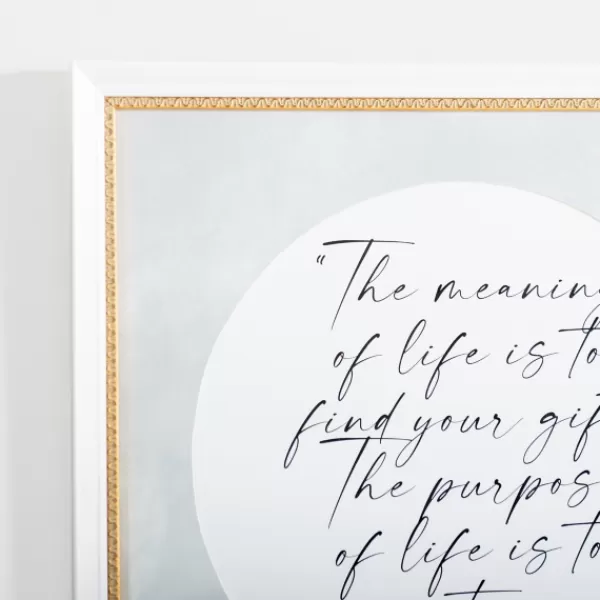 “The meaning
of life is to
find your gift
The purpos
of life is to